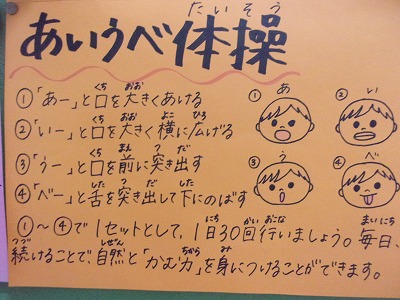 たいそう
あいうべ体操
くち おお
①「あー」と口を大きくあける
くち おお よこ ひろ
②「いー」と口を大きく横に広げる
くち まえ つ だ
③「うー」と口を前に突き出す
した つ だ した
④「べー」と舌を突き出して下にのばす
① あ
② い
③ う
④ べ
にち かい おこな まいにち
①～④で1セットとして、1日30回行いましょう。毎日、
つづ しぜん ちから み
続けることで、自然と「かむ力」を身につけることができます。